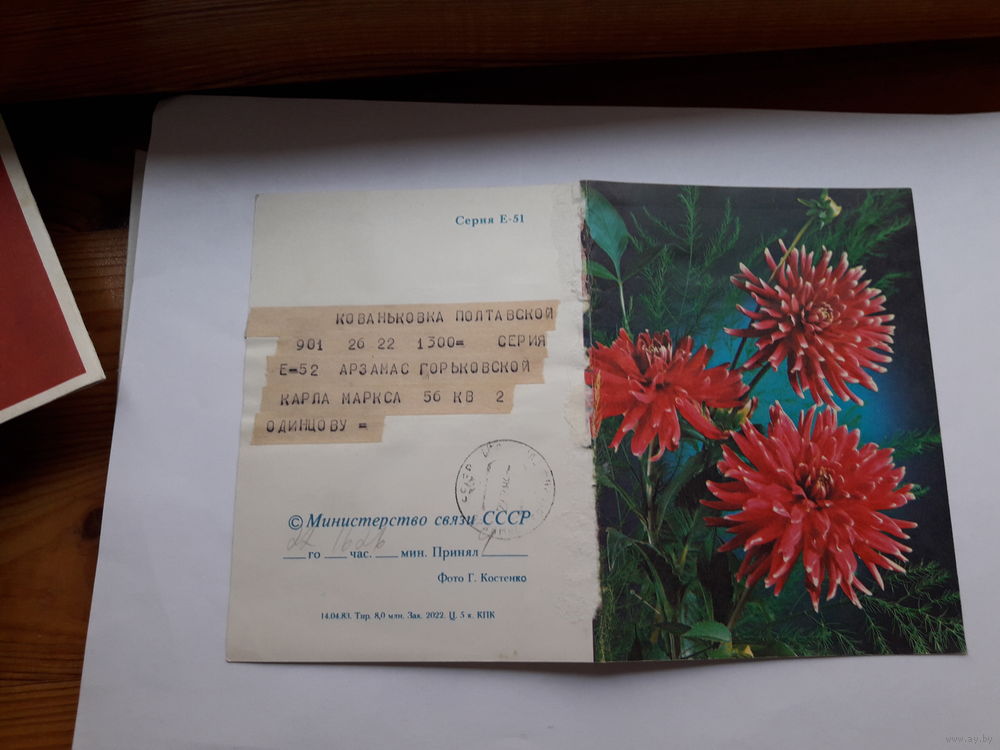 Серия Е-51
КОВАНЬКОВКА ПОЛТАВСКОЙ
901 26 22 1300= СЕРИЯ
Е-52 АРЗАМАС ГОРЬКОВСКОЙ
КАРЛА МАРКСА 56 КВ 2
ОДИНЦОВУ =
© Министерство связи СССР
22 1626
___го ___час. ___мин. Принял ______
Фото Г. Костенко
14.04.83. Тир. 8,0 млн. Зак. 2022. Ц. 5 к. КПК
www.ay.by